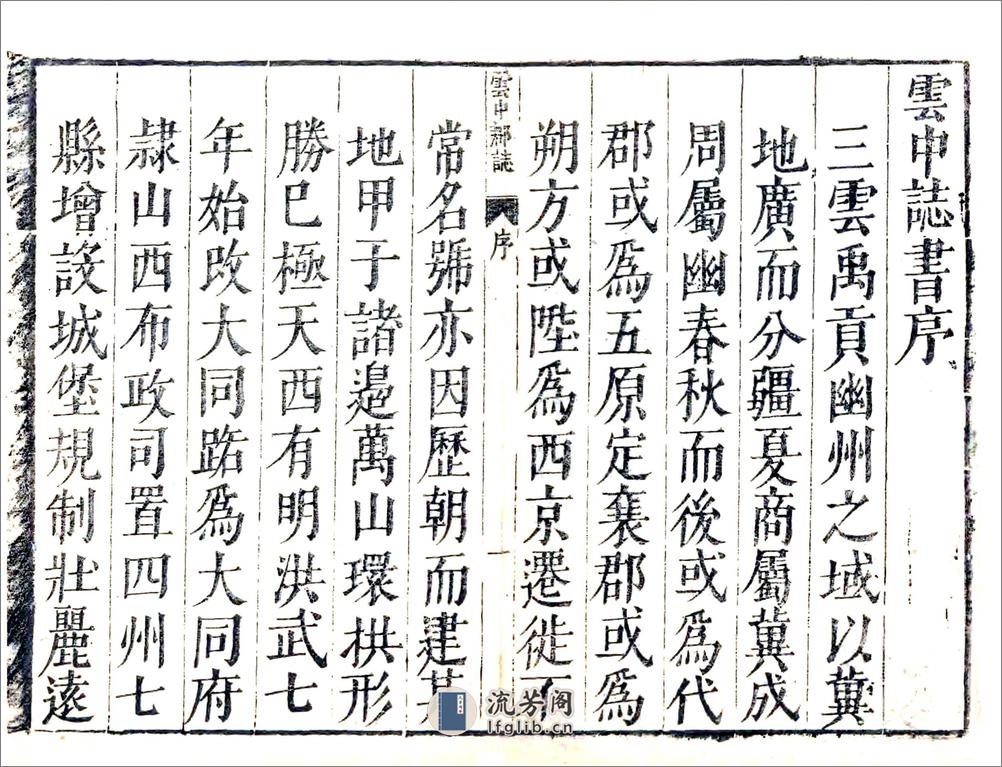 雲中誌書序
三雲禹貢幽州之域以冀
地廣而分疆夏商屬冀成
周屬幽春秋而後或爲代
郡或爲五原定襄郡或爲
朔方或陞爲西京遷徙不
雲中郡誌 序 一
常名號亦因歷朝而建其
地甲于諸邊萬山環栱形
勝巳極天西有明洪武七
年始改大同路爲大同府
隸山西布政司置四州七
縣增設城堡規制壯麗遠
流芳阁
lfglib.cn